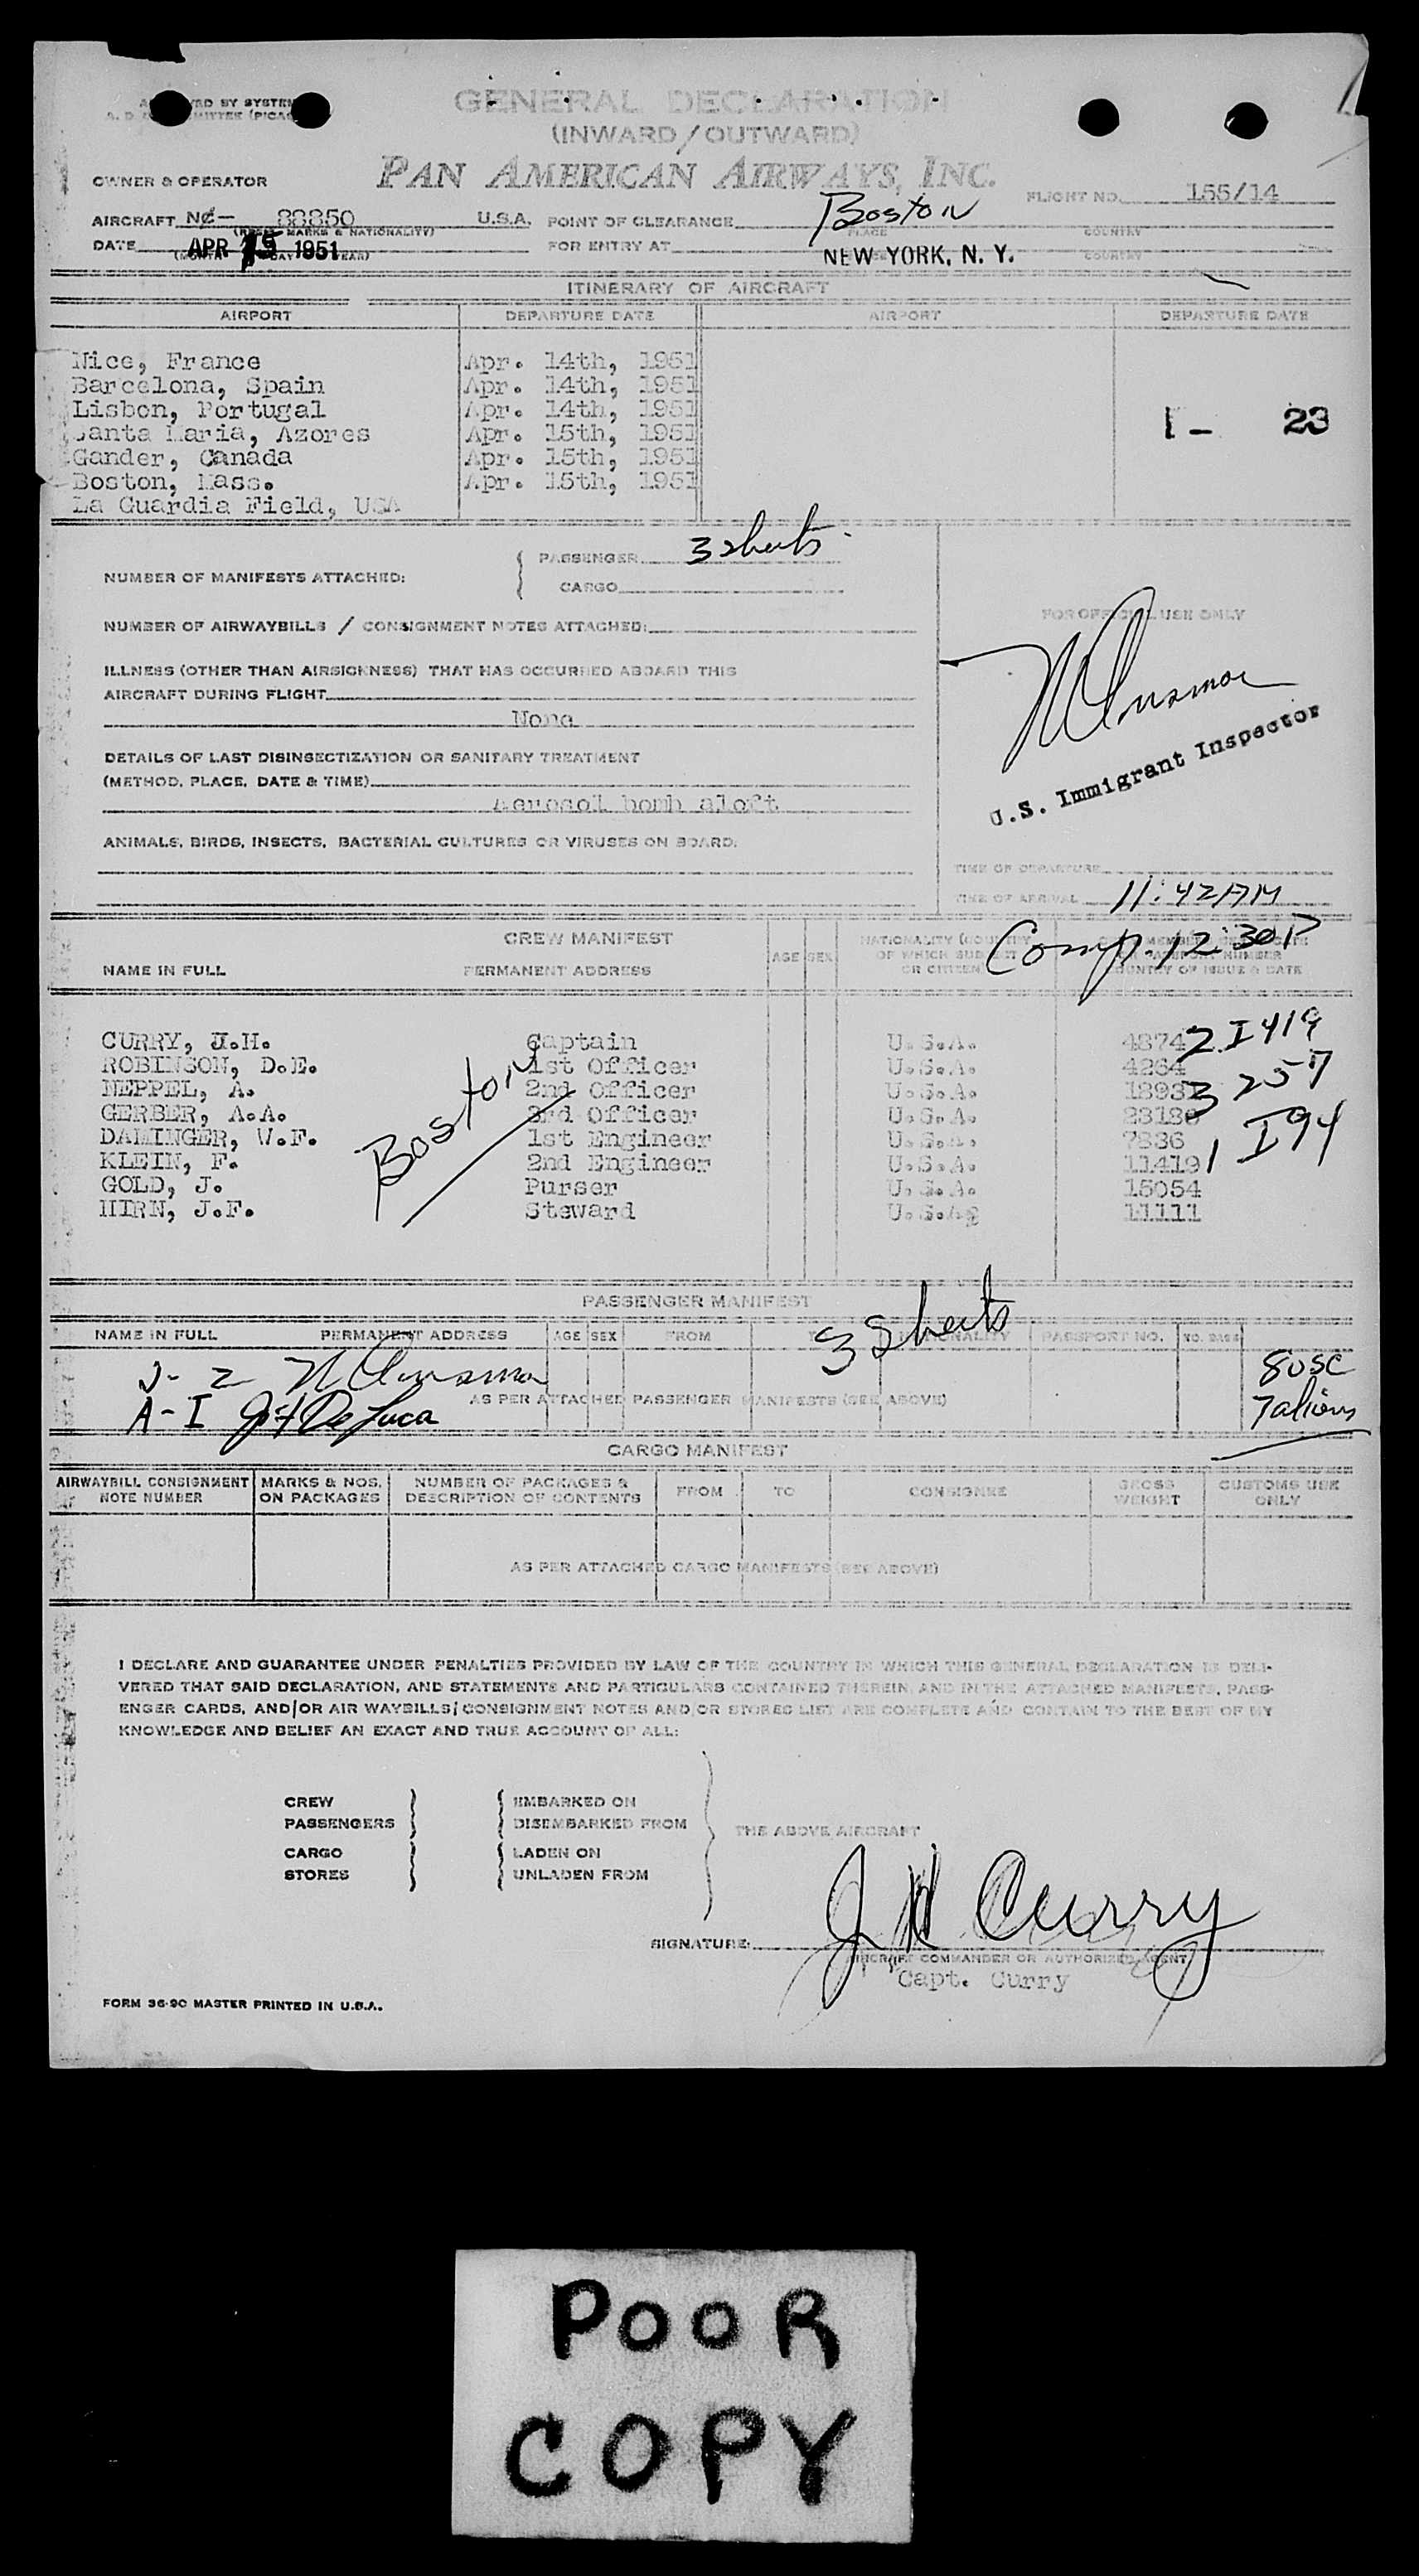 GENERAL DECLARATION
(INWARD/OUTWARD)
PAN AMERICAN AIRWAYS, INC.
OWNER & OPERATOR
FLIGHT NO. 155/14
AIRCRAFT NC- 88850 U.S.A. POINT OF CLEARANCE Boston
(REG. MARKS & NATIONALITY) PLACE COUNTRY
DATE APR 15 1951 FOR ENTRY AT NEW YORK, N. Y.
COUNTRY
ITINERARY OF AIRCRAFT
AIRPORT DEPARTURE DATE AIRPORT DEPARTURE DATE
Nice, France Apr. 14th, 1951
Barcelona, Spain Apr. 14th, 1951
Lisbon, Portugal Apr. 14th, 1951
Santa Maria, Azores Apr. 15th, 1951 1- 23
Gander, Canada Apr. 15th, 1951
Boston, Mass. Apr. 15th, 1951
La Guardia Field, USA
NUMBER OF MANIFESTS ATTACHED:
PASSENGER 3 sheets
CARGO
NUMBER OF AIRWAYBILLS / CONSIGNMENT NOTES ATTACHED:
ILLNESS (OTHER THAN AIRSICKNESS) THAT HAS OCCURRED ABOARD THIS
AIRCRAFT DURING FLIGHT
None
DETAILS OF LAST DISINSECTIZATION OR SANITARY TREATMENT
(METHOD, PLACE, DATE & TIME)
Aerosol bomb aloft
ANIMALS, BIRDS, INSECTS, BACTERIAL CULTURES OR VIRUSES ON BOARD.
FOR OFFICIAL USE ONLY
U.S. Immigrant Inspector
TIME OF DEPARTURE
TIME OF ARRIVAL 11:42AM
Comp. 12:30P
CREW MANIFEST
NAME IN FULL PERMANENT ADDRESS AGE SEX NATIONALITY (COUNTRY
OF WHICH SUBJECT
OR CITIZEN
COUNTRY OF ISSUE & DATE
CURRY, J.H. Captain U.S.A. 4374
ROBINSON, D.E. 1st Officer U.S.A. 4264
NEPPEL, A. 2nd Officer U.S.A.
GERBER, A.A. 3rd Officer U.S.A.
DAMINGER, W.F. 1st Engineer U.S.A. 7336
KLEIN, F. 2nd Engineer U.S.A. 11419
GOLD, J. Purser U.S.A. 15054
HIRN, J.F. Steward U.S.A. 11111
Boston
2 I 419
3 257
1 I 94
PASSENGER MANIFEST
NAME IN FULL PERMANENT ADDRESS AGE SEX FROM NATIONALITY PASSPORT NO.
3 Sheets
AS PER ATTACHED PASSENGER MANIFESTS (SEE ABOVE)
A-I De Luca
8 USC
7 aliens
CARGO MANIFEST
AIRWAYBILL CONSIGNMENT NOTE NUMBER
MARKS & NOS. ON PACKAGES
NUMBER OF PACKAGES & DESCRIPTION OF CONTENTS
FROM
TO
CONSIGNEE
GROSS WEIGHT
CUSTOMS USE ONLY
AS PER ATTACHED CARGO MANIFESTS (SEE ABOVE)
I DECLARE AND GUARANTEE UNDER PENALTIES PROVIDED BY LAW OF THE COUNTRY IN WHICH THIS GENERAL DECLARATION IS DELI-
VERED THAT SAID DECLARATION, AND STATEMENTS AND PARTICULARS CONTAINED THEREIN, AND IN THE ATTACHED MANIFESTS, PASS-
ENGER CARDS, AND/OR AIR WAYBILLS/CONSIGNMENT NOTES AND/OR STORES LIST ARE COMPLETE AND CONTAIN TO THE BEST OF MY
KNOWLEDGE AND BELIEF AN EXACT AND TRUE ACCOUNT OF ALL:
CREW
PASSENGERS
CARGO
STORES
EMBARKED ON
DISEMBARKED FROM
LADEN ON
UNLADEN FROM
THE ABOVE AIRCRAFT
SIGNATURE: J H Curry
AIRCRAFT COMMANDER OR AUTHORIZED AGENT
Capt. Curry
FORM 36-90 MASTER PRINTED IN U.S.A.
POOR
COPY